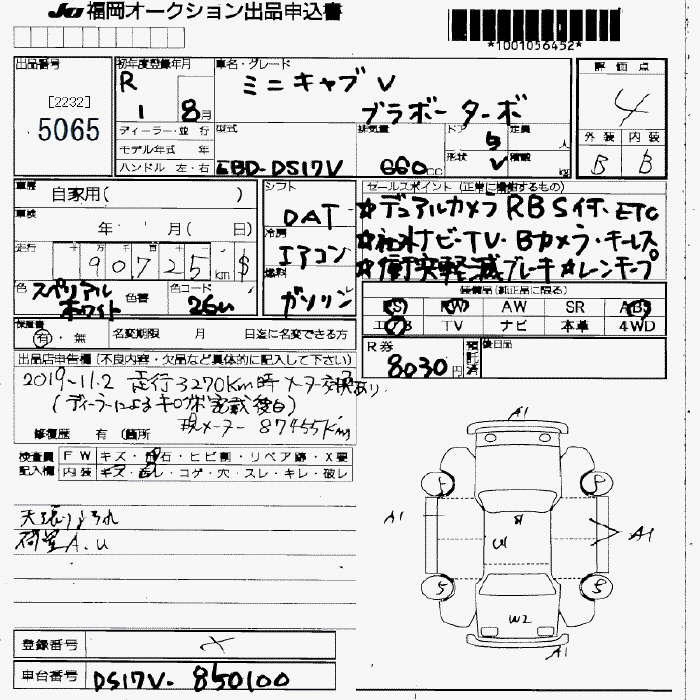 JU 福岡オークション出品申込書
*1001056452*
出品番号
[2232]
5065
初年度登録年月
R 1 8月
ディーラー・並 行
モデル年式 年
ハンドル 左・右
車名・グレード
ミニキャブ V
ブラボー ターボ
型式
EBD-DS17V
排気量
660cc
ドア 5
形状 V
定員 人
積載 kg
評価点
4
外装 内装
B B
車歴
自家用( )
車検
年 月( 日)
走行
十 万 千 百 十 一
90,725km $
色 スペリアルホワイト
色替
色コード
26U
シフト
DAT
冷房
エアコン
燃料
ガソリン
セールスポイント(正常に機能するもの)
☆デュアルカメラ RBS付・ETC
☆社外ナビ・TV・Bカメラ・キーレス
☆衝突軽減ブレーキ☆レンキープ
装備品(純正品に限る)
PS PW AW SR ABS
エアB TV ナビ 本革 4WD
保証書
有・無
名変期限 月 日迄に名変できる方
R券
8030円
預託済
後日品
出品店申告欄(不良内容・欠品など具体的に記入して下さい)
2019-11.2 走行3270Km時メーター交換あり
(ディーラーによるキロ 記載後日)
現メーター 87455Km
修復歴 有 (箇所
検査員記入欄
FW キズ・飛石・ヒビ割・リペア跡・X要
内装 キズ・汚レ・コゲ・穴・スレ・キレ・破レ
天張りよごれ
荷室A.U
A1
S
S
A1
U1
A1
S
S
W2
A1
登録番号
車台番号
DS17V-850100